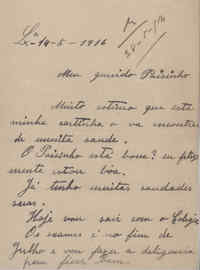 Lx.ª 14-5-1916
Meu querido Paisinho.
Muito estimo que esta
minha cartinha o va encontrar
de muita saude.
O Paisinho está bom? eu feliz
mente estou boa.
Já tenho muitas saudades
suas.
Hoje vou sair com o Colegio
Os exames é no fim de
Julho e vou fazer a deligencia
para ficar bem.